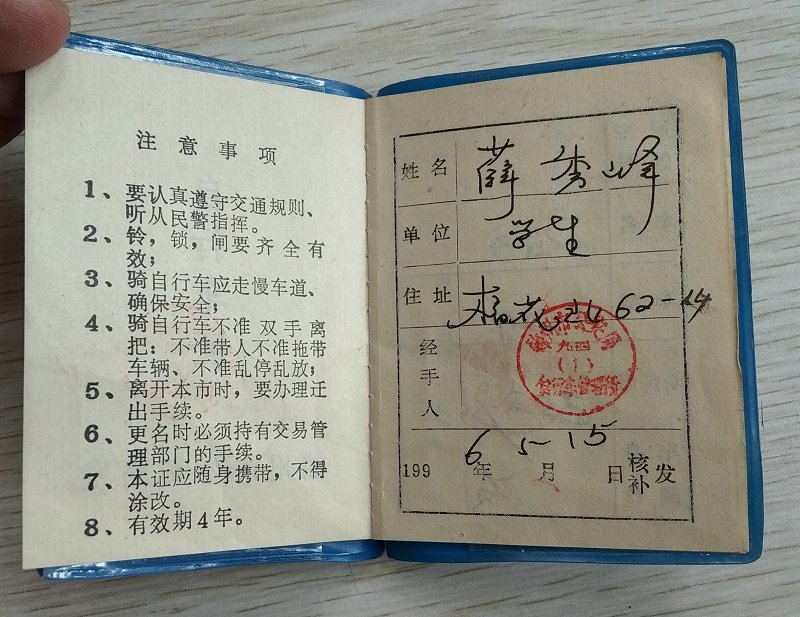 注意事项
1、要认真遵守交通规则、
听从民警指挥。
2、铃，锁，闸要齐全有
效；
3、骑自行车应走慢车道、
确保安全；
4、骑自行车不准双手离
把：不准带人不准拖带
车辆、不准乱停乱放；
5、离开本市时，要办理迁
出手续。
6、更名时必须持有交易管
理部门的手续。
7、本证应随身携带，不得
涂改。
8、有效期4年。
姓名 薛秀峰
单位 学生
住址 62-14
经手人
九四
(1)
1996年5月15日核补发